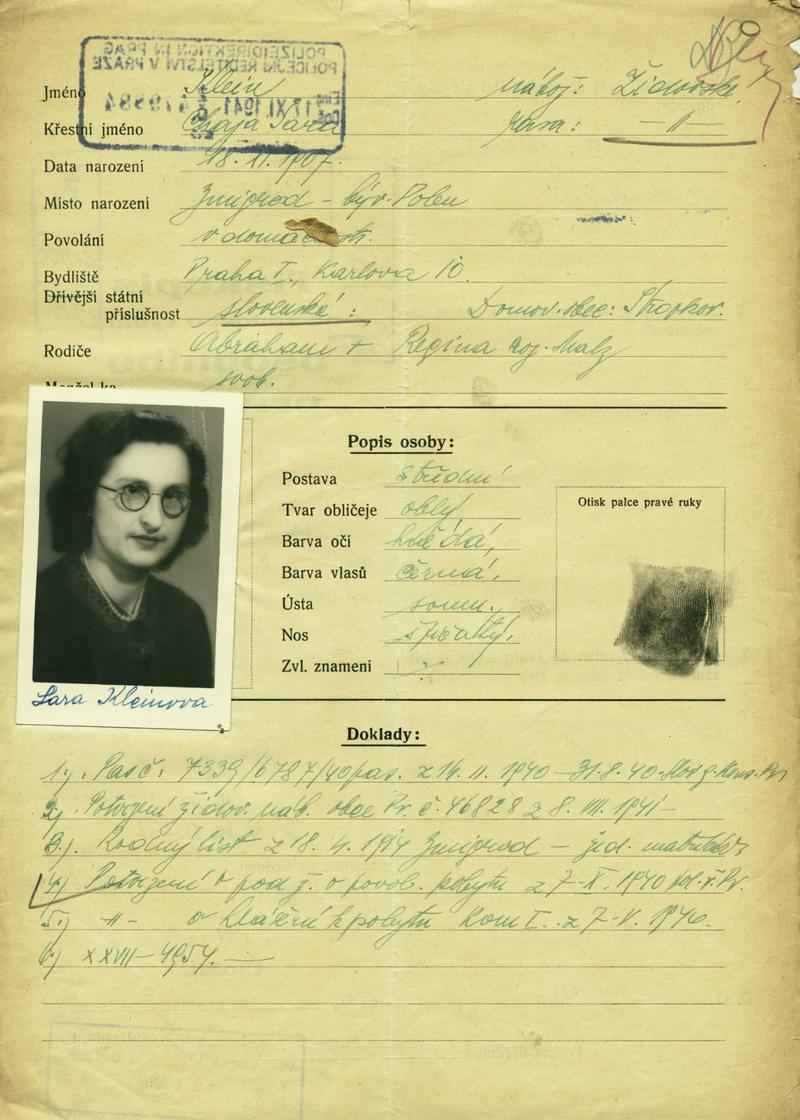 POLIZEIDIREKTION IN PRAG
POLICEJNÍ ŘEDITELSTVÍ V PRAZE
17. XI. 1941
Jméno Klein nábož: Židovské!
Křestní jméno Chaja Sara rasa: — " —
Data narození 18. II. 1907.
Místo narození Zmigrod – býv. Polsko
Povolání v domácnosti.
Bydliště Praha I., Karlova 10.
Dřívější státní
příslušnost slovenská: Domov. obec: Stropkov.
Rodiče Abraham + Regina roz. Malz
svob.
Popis osoby:
Postava střední
Tvar obličeje oblý
Barva očí hnědá,
Barva vlasů černá,
Ústa soum.,
Nos špičatý,
Zvl. znamení
Otisk palce pravé ruky
Sara Kleinova
Doklady:
1). Pas č. 7339/6787/40 pas. z 14. II. 1940 – 31. 8. 40.
2). Potvrzení židov. náb. obce Pr. č. 46828 z 8. VII. 1941 –
3). Rodný list z 18. 4. Zmigrod – žid.
4). Potvrzení o pod. ž. o povol. pobytu z 7. X. 1940 pol. ř. Pr.
5.) –"– o hlášení k pobytu Kom I. z 7. V. 1940.
6) XXVII – 4954. —